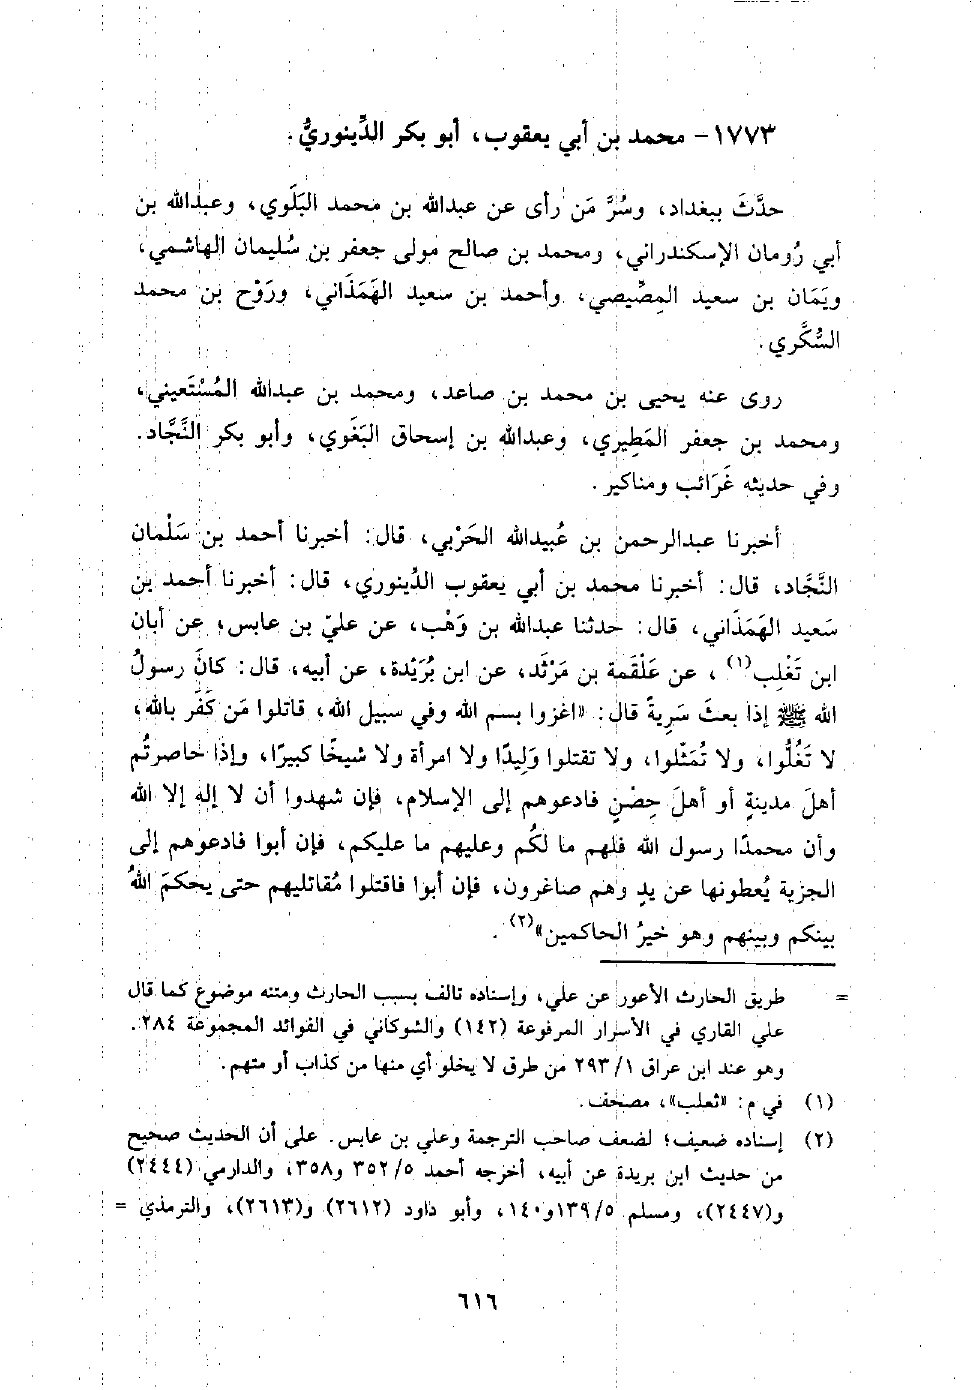 ١٧٧٣- محمد بن أبي يعقوب، أبو بكر الدِّينوريُّ.
حدَّثَ ببغداد، وسُرَّ مَن رأى عن عبدالله بن محمد البَلَوي، وعبدالله بن
أبي رُومان الإسكندراني، ومحمد بن صالح مولى جعفر بن سُليمان الهاشمي،
ويَمَان بن سعيد المِصِّيصي، وأحمد بن سعيد الهَمَذَاني، ورَوْح بن محمد
السُّكَّري.
روى عنه يحيى بن محمد بن صاعد، ومحمد بن عبدالله المُسْتَعيني،
ومحمد بن جعفر المَطِيري، وعبدالله بن إسحاق البَغَوي، وأبو بكر النَّجَّاد.
وفي حديثه غَرَائب ومناكير.
أخبرنا عبدالرحمن بن عُبيدالله الحَرْبي، قال: أخبرنا أحمد بن سَلْمان
النَّجَّاد، قال: أخبرنا محمد بن أبي يعقوب الدِّينوري، قال: أخبرنا أحمد بن
سَعيد الهَمَذَاني، قال: حدثنا عبدالله بن وَهْب، عن عليّ بن عابس، عن أبان
ابن تَغْلِب(١)، عن عَلْقَمة بن مَرْثَد، عن ابن بُرَيْدة، عن أبيه، قال: كانَ رسولُ
الله ﷺ إذا بعثَ سَرِيةً قال: «اغزوا بسم الله وفي سبيل الله، قاتلوا مَن كَفَر بالله،
لا تَغُلُّوا، ولا تُمَثّلوا، ولا تقتلوا وَلِيدًا ولا امرأة ولا شيخًا كبيرًا، وإذا حاصرتُم
أهلَ مدينةٍ أو أهلَ حِصْنٍ فادعوهم إلى الإسلام، فإن شهدوا أن لا إله إلا الله
وأن محمدًا رسول الله فلهم ما لكُم وعليهم ما عليكم، فإن أبوا فادعوهم إلى
الجزية يُعطونها عن يدٍ وهم صاغرون، فإن أبوا فاقتلوا مُقاتليهم حتى يحكمَ اللهُ
بينكم وبينهم وهو خيرُ الحاكمين»(٢).
= طريق الحارث الأعور عن علي، وإسناده تالف بسبب الحارث ومتنه موضوع كما قال
علي القاري في الأسرار المرفوعة (١٤٢) والشوكاني في الفوائد المجموعة ٢٨٤.
وهو عند ابن عراق ١/ ٢٩٣ من طرق لا يخلو أي منها من كذاب أو متهم.
(١) في م: «ثعلب»، مصحف.
(٢) إسناده ضعيف؛ لضعف صاحب الترجمة وعلي بن عابس. على أن الحديث صحيح
من حديث ابن بريدة عن أبيه، أخرجه أحمد ٥/ ٣٥٢ و٣٥٨، والدارمي (٢٤٤٤)
و(٢٤٤٧)، ومسلم ٥/ ١٣٩و١٤٠، وأبو داود (٢٦١٢) و(٢٦١٣)، والترمذي =
٦١٦